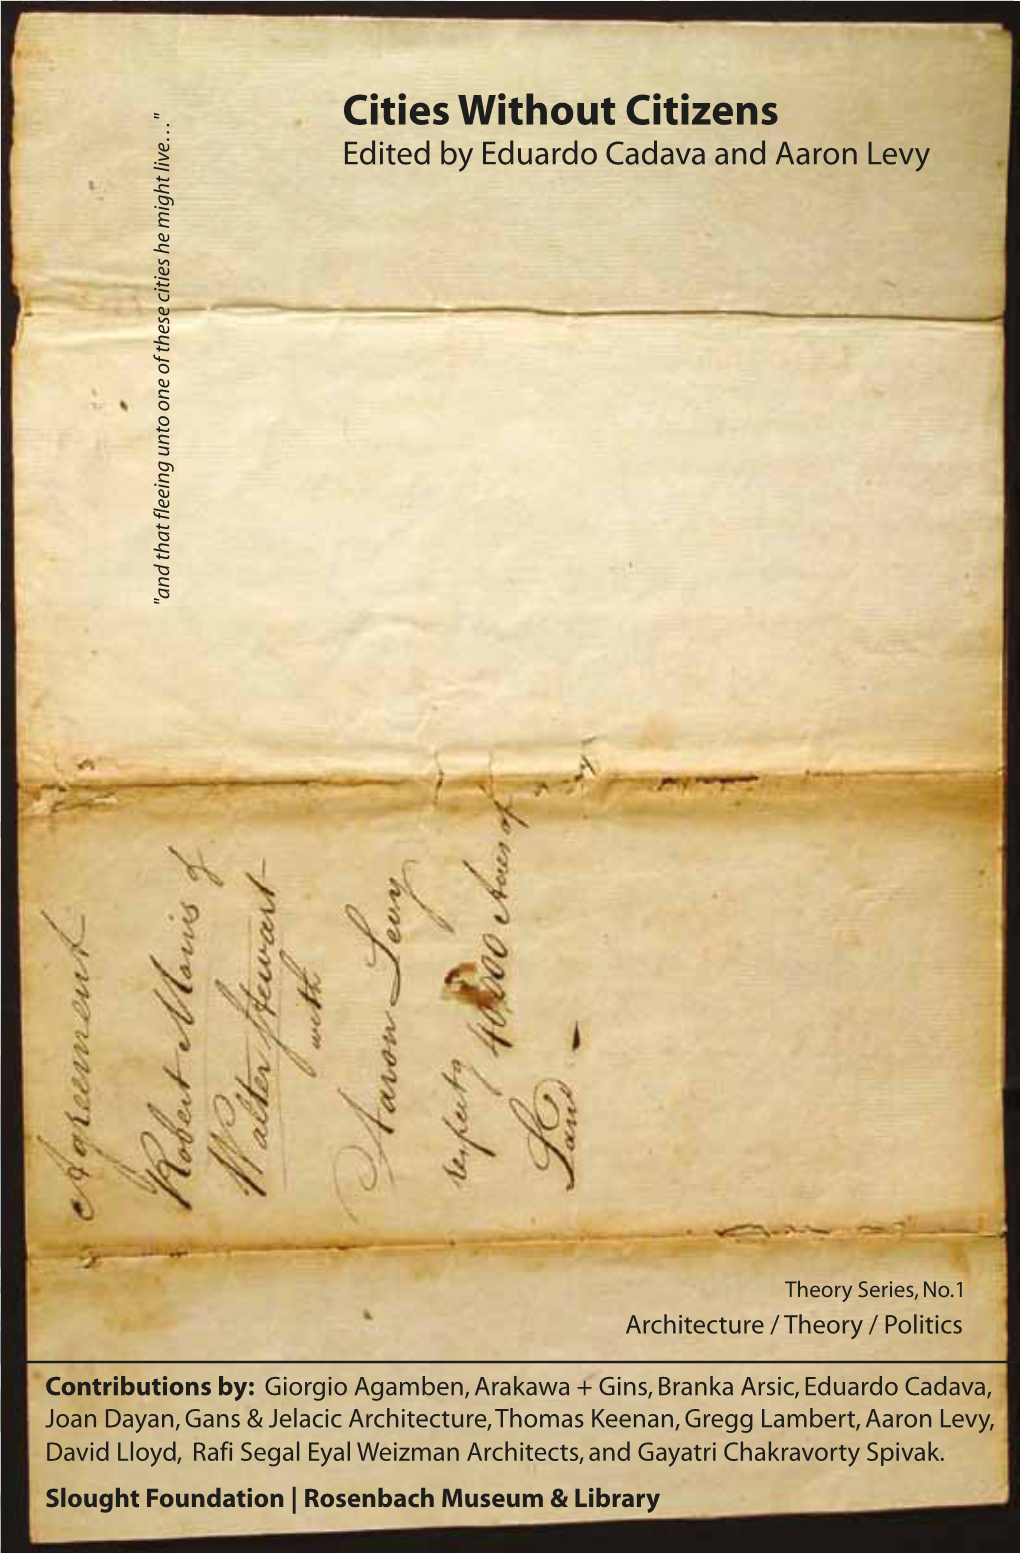 Cities Without Citizens
Edited by Eduardo Cadava and Aaron Levy
"and that fleeing unto one of these cities he might live…"
Agreement
Robert Morris &
Walter Stewart
with
Aaron Levy
respectg 40,000 Acres of
Land
Theory Series, No.1
Architecture / Theory / Politics
Contributions by: Giorgio Agamben, Arakawa + Gins, Branka Arsic, Eduardo Cadava,
Joan Dayan, Gans & Jelacic Architecture, Thomas Keenan, Gregg Lambert, Aaron Levy,
David Lloyd, Rafi Segal Eyal Weizman Architects, and Gayatri Chakravorty Spivak.
Slought Foundation | Rosenbach Museum & Library